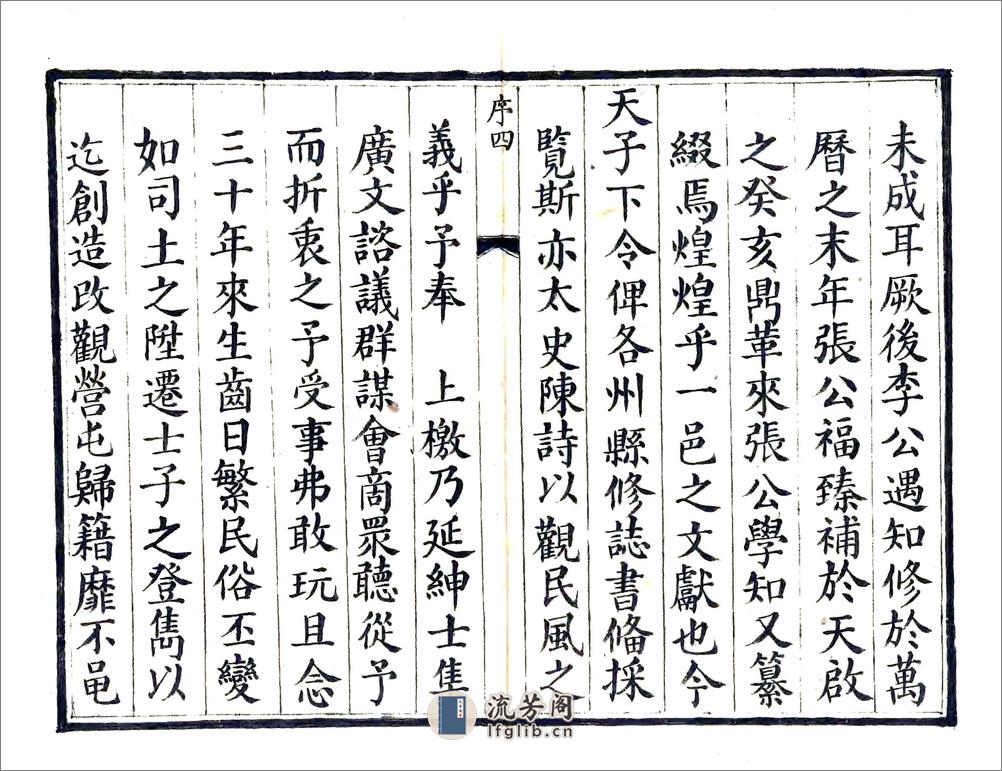 未成耳厥後李公遇知修於萬
曆之末年張公福臻補於天啟
之癸亥鼎革來張公學知又纂
綴焉煌煌乎一邑之文獻也今
天子下令俾各州縣修誌書偹採
覽斯亦太史陳詩以觀民風之
序四
義乎予奉　上檄乃延紳士隽
廣文諮議群謀會啇眾聽從予
而折衷之予受事弗敢玩且念
三十年來生齒日繁民俗丕變
如司土之陞遷士子之登雋以
迄創造改觀營屯歸籍靡不黽
流芳阁
lfglib.cn